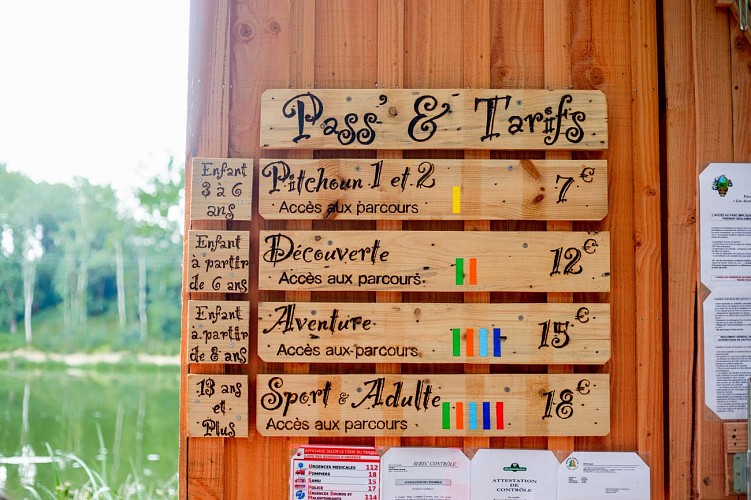 Pass' & Tarifs
Enfant
3 à 6
ans
Pitchoun 1 et 2
Accès aux parcours
7€
Enfant
à partir
de 6 ans
Découverte
Accès aux parcours
12€
Enfant
à partir
de 8 ans
Aventure
Accès aux parcours
15€
13 ans
et
Plus
Sport & Adulte
Accès aux parcours
18€
URGENCES MEDICALES 112
POMPIERS 18
SAMU 15
POLICE 17
114
ATTESTATION
DE
CONTRÔLE